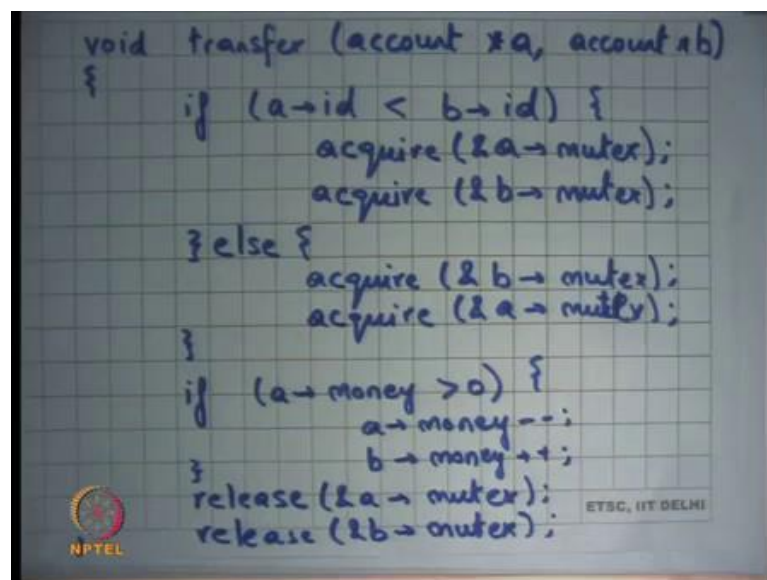 void transfer (account *a, account *b)
{
if (a→id < b→id) {
acquire (&a→mutex);
acquire (&b→mutex);
} else {
acquire (&b→mutex);
acquire (&a→mutex);
}
if (a→money >0) {
a→money--;
b→money++;
}
release (&a→mutex);
release (&b→mutex);
ETSC, IIT DELHI
NPTEL